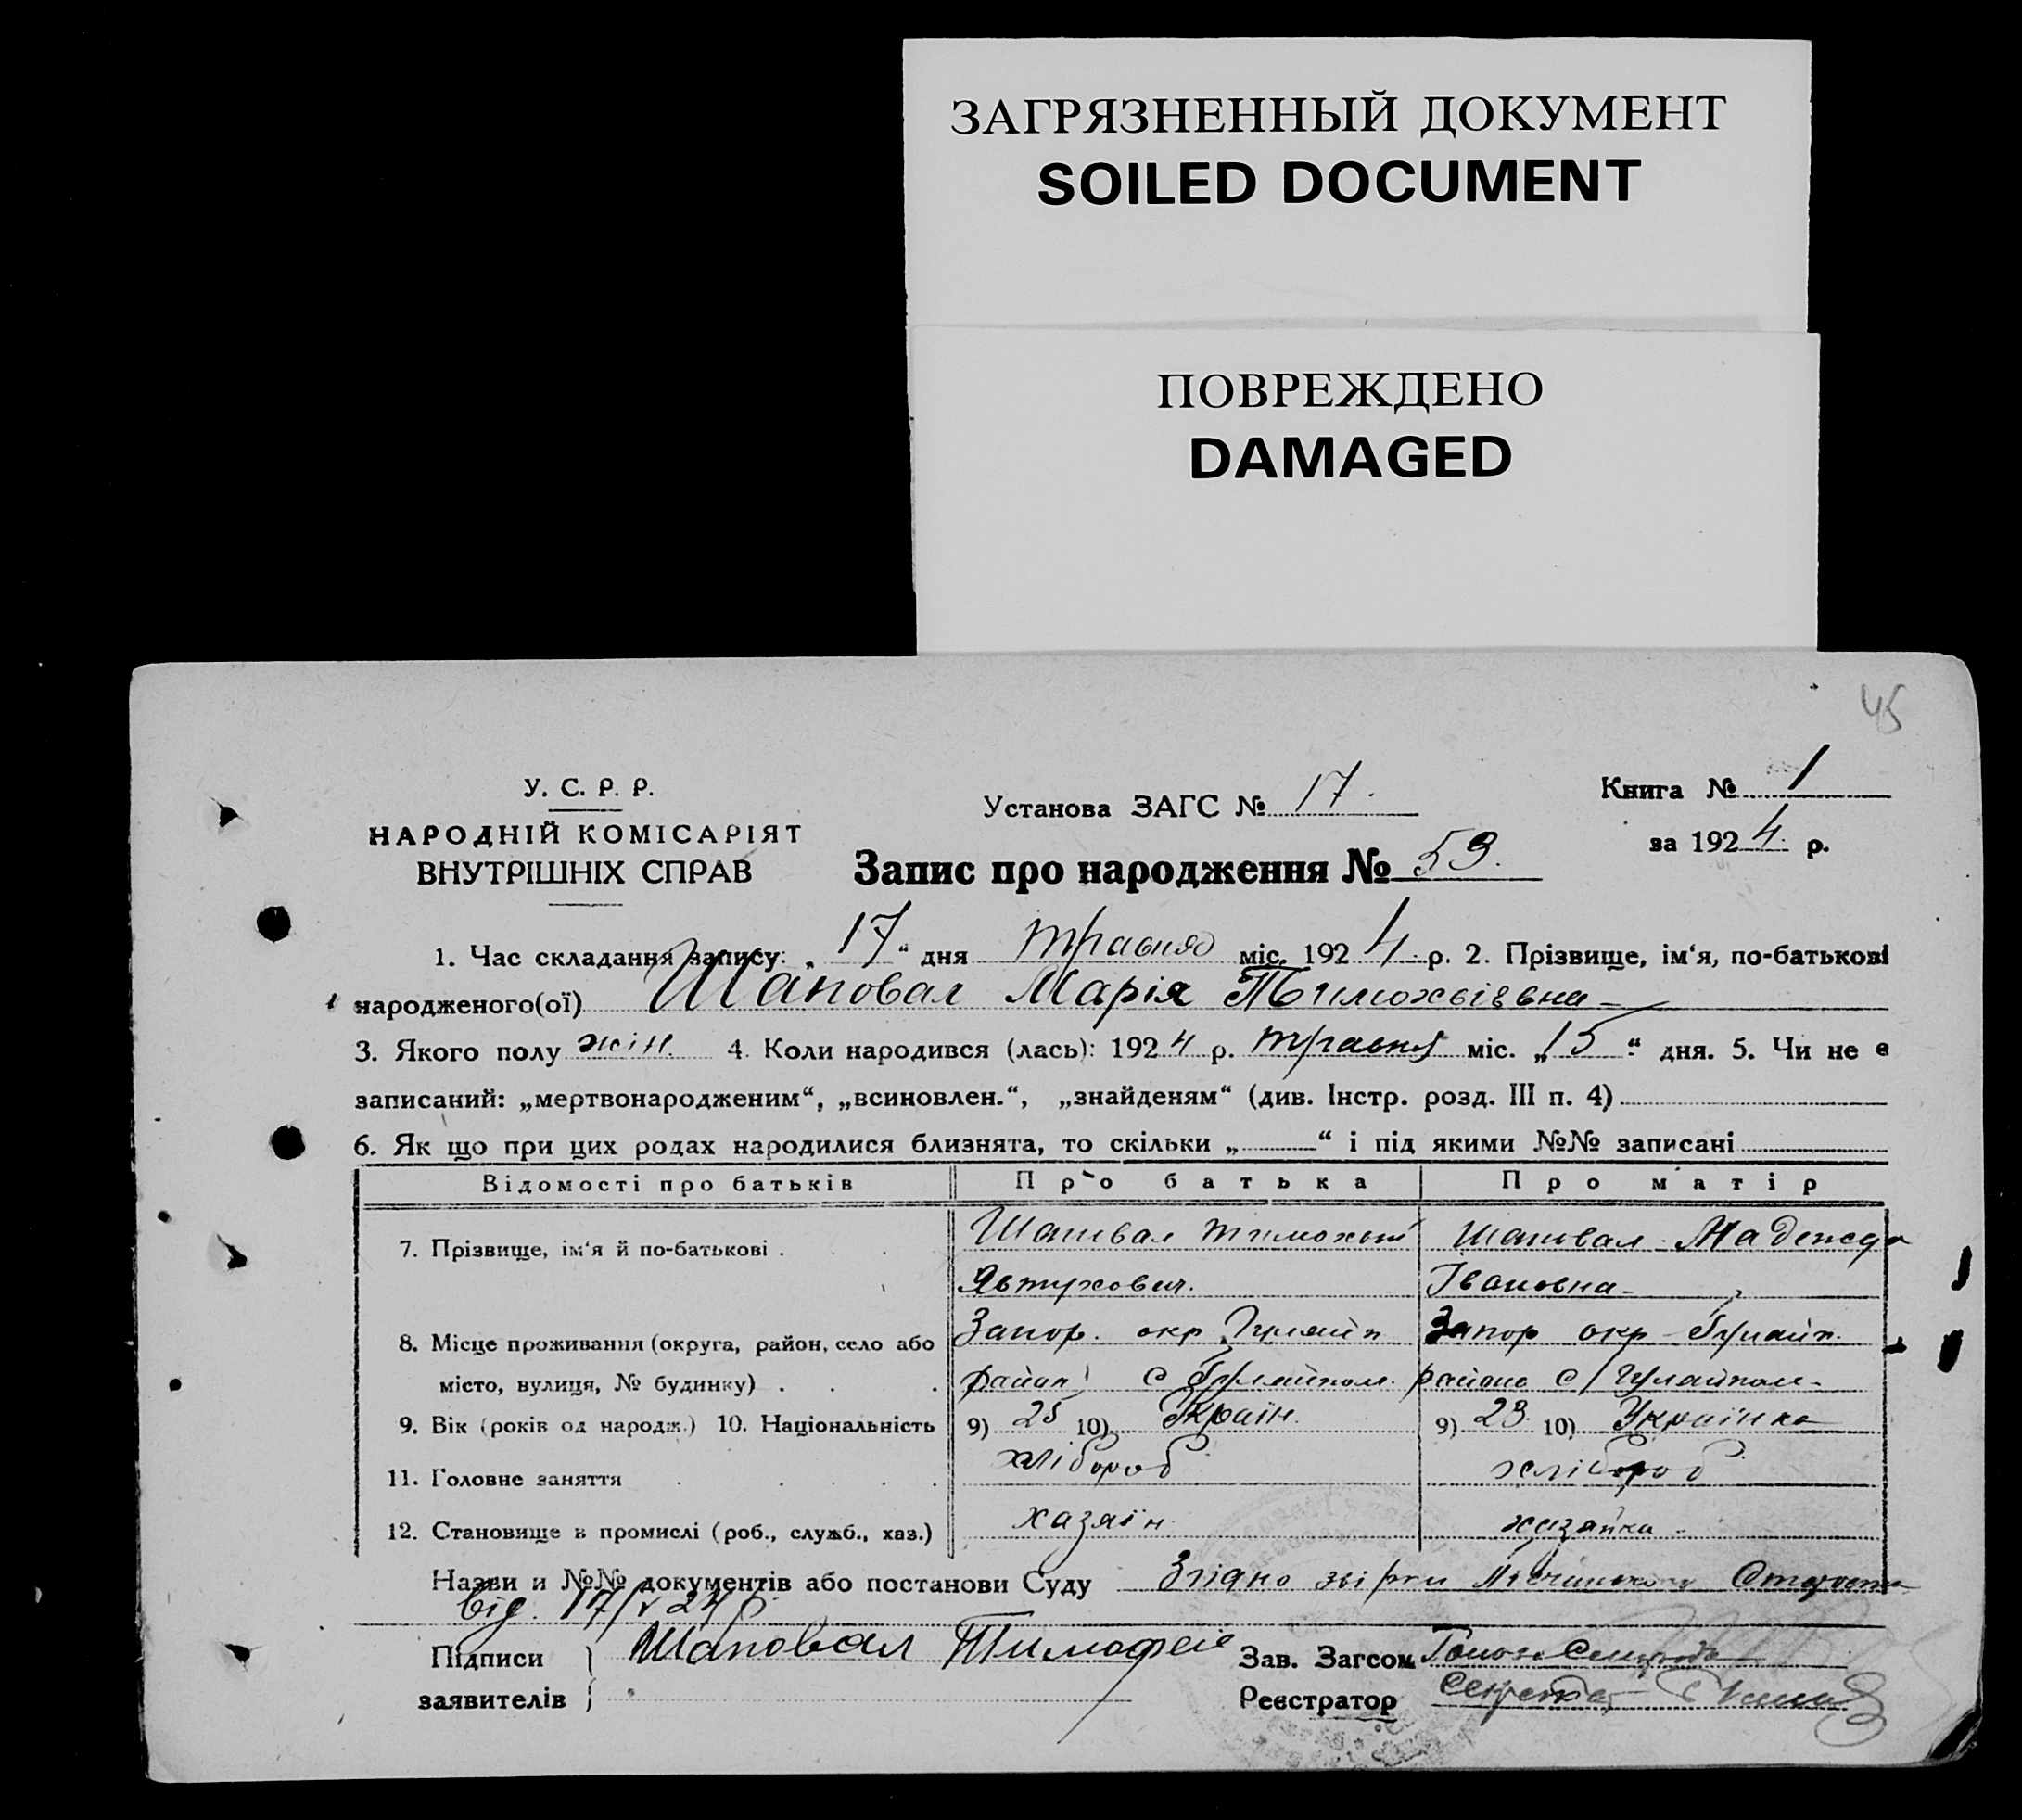 ЗАГРЯЗНЕННЫЙ ДОКУМЕНТ
SOILED DOCUMENT
ПОВРЕЖДЕНО
DAMAGED
45
У. С. Р. Р.
НАРОДНІЙ КОМІСАРІЯТ
ВНУТРІШНІХ СПРАВ
Установа ЗАГС № 17.
Книга № 1
за 1924 р.
Запис про народження № 53.
1. Час складання запису: „17“ дня травня міс. 1924 р. 2. Прізвище, ім‘я, по-батькові
народженого(ої) Шаповал Марія Тимохвіївна
3. Якого полу жін. 4. Коли народився (лась): 1924 р. травня міс. „15“ дня. 5. Чи не є
записаний: „мертвонародженим“, „всиновлен.“, „знайденям“ (див. Інстр. розд. III п. 4)
6. Як що при цих родах народилися близнята, то скільки „ “ і під якими №№ записані
Відомості про батьків Про батька Про матір
7. Прізвище, ім‘я й по-батькові . Шаповал Тимохвій Шаповал Надежда
Явтухович. Івановна
8. Місце проживання (округа, район, село або Запор. окр Гуляйп Запор окр Гуляйп.
місто, вулиця, № будинку) . . . район с Гуляйполе району с/Гуляйполе
9. Вік (років од народж.) 10. Національність 9) 25 10) Україн. 9) 23. 10) Українка
11. Головне заняття хлібороб хлібороб
12. Становище в промислі (роб., служб., хаз.) хазяїн хазяйка
Назви и №№ документів або постанови Суду Згідно
від 17/V 24 р.
Підписи заявителів Шаповал Тимофей
Зав. Загсом
Реєстратор Секретар